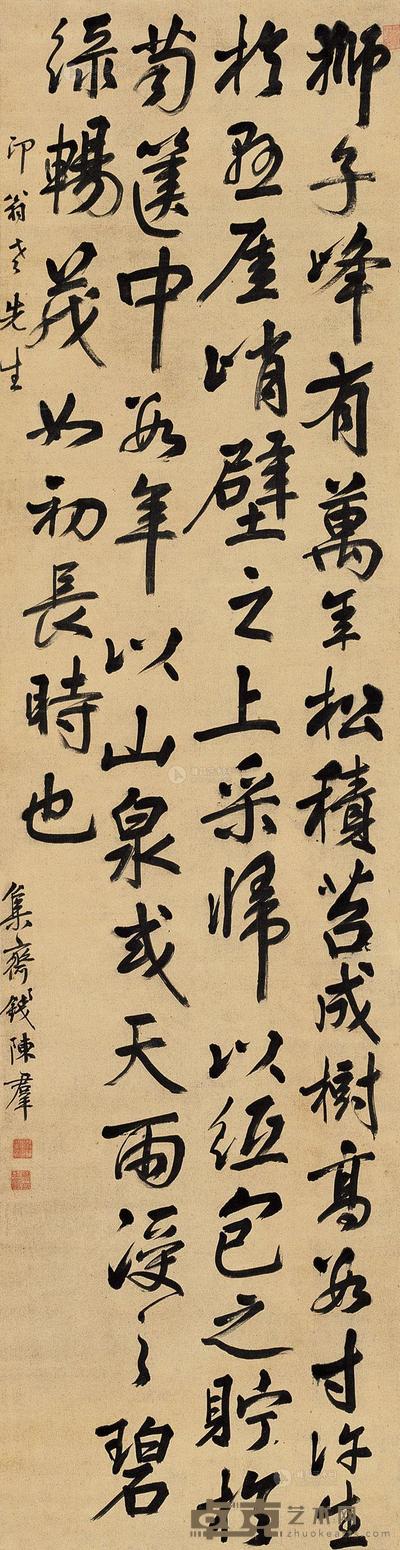 獅子峰有萬年松積苔成樹高數寸許生
於懸厓峭壁之上采歸以紙包之貯於
笥篋中數年以山泉或天雨浸之碧
綠暢茂如初長時也
印翁老先生
集齋錢陳羣
卓克艺术网
zhuokearts.com